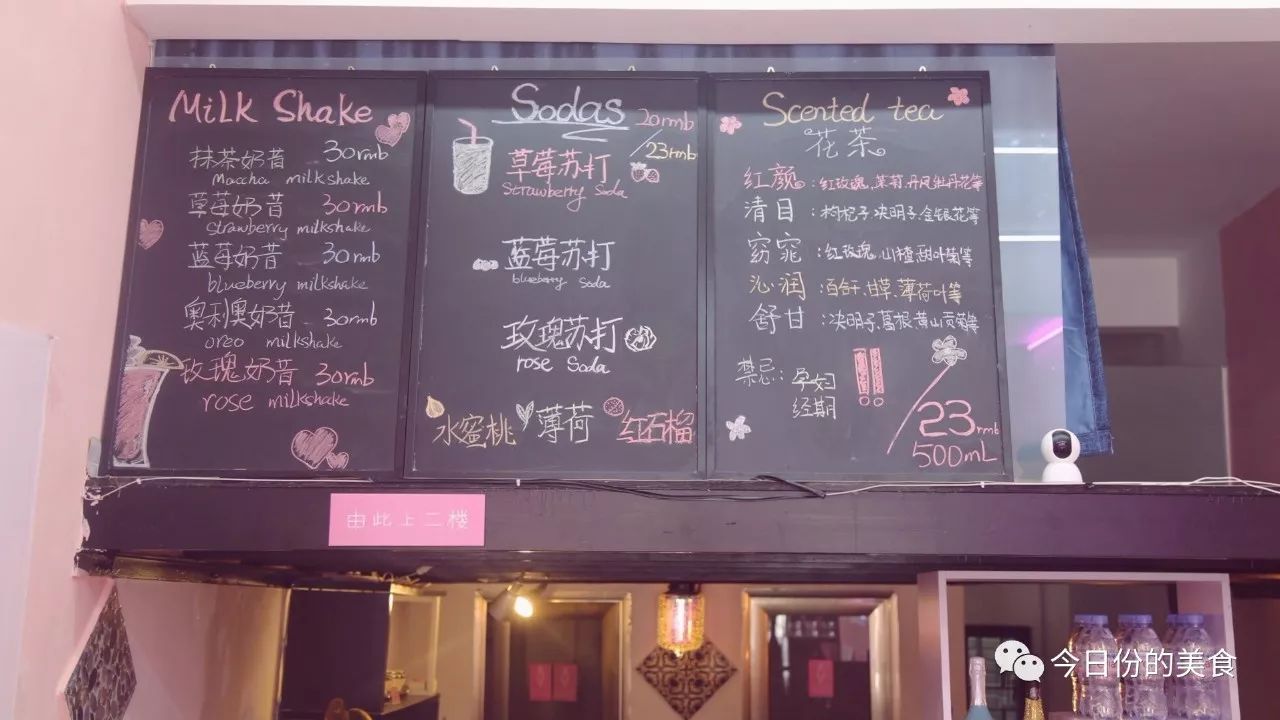 Milk Shake
抹茶奶昔 30rmb
Maccha milkshake
草莓奶昔 30rmb
strawberry milkshake
蓝莓奶昔 30rmb
blueberry milkshake
奥利奥奶昔 30rmb
oreo milkshake
玫瑰奶昔 30rmb
rose milkshake
Sodas 20rmb
/23rmb
草莓苏打
Strawberry Soda
蓝莓苏打
blueberry Soda
玫瑰苏打
rose Soda
水蜜桃 薄荷 红石榴
Scented tea
花茶
红颜:红玫瑰.茉莉.丹凤牡丹花等
清目:枸杞子.决明子.金银花等
窈窕:红玫瑰.山楂.甜叶菊等
沁润:百合干.甘草.薄荷叶等
舒甘:决明子.葛根.黄山贡菊等
禁忌:孕妇
经期
!!
23rmb
500mL
由此上二楼
今日份的美食